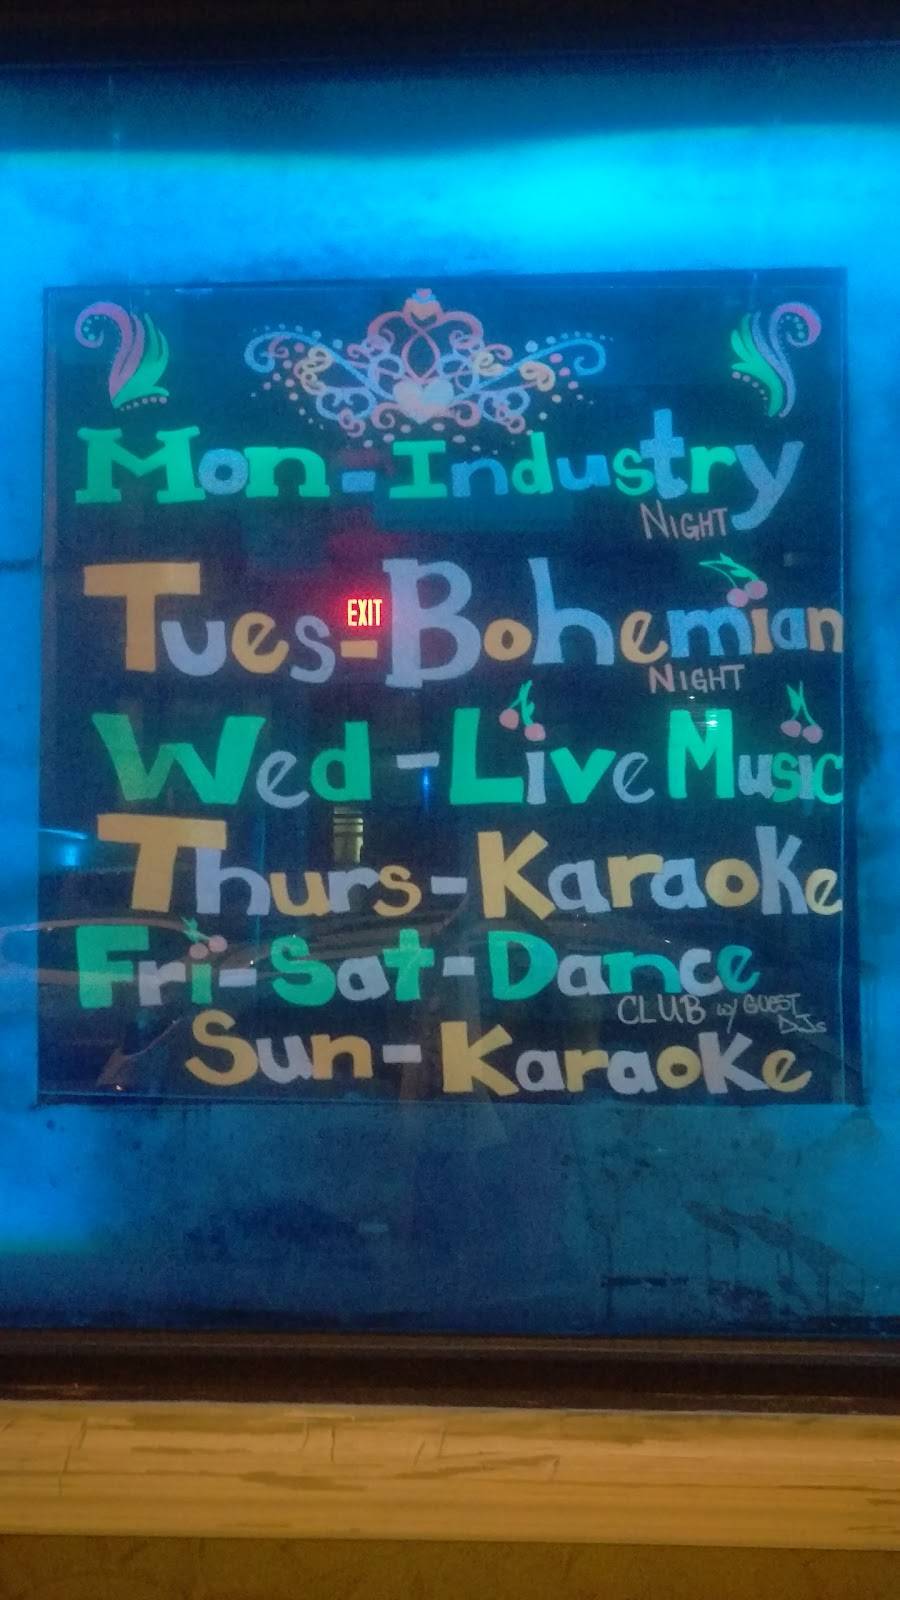 Mon-Industry
NIGHT
EXIT
Tues-Bohemian
NIGHT
Wed-Live Music
Thurs-Karaoke
Fri-Sat-Dance
CLUB w/ GUEST
DJs
Sun-Karaoke